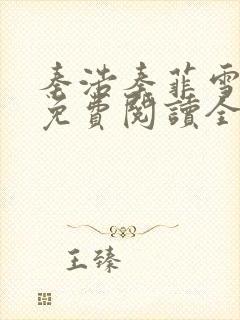 秦浩秦菲雪
免費閱讀全
王臻